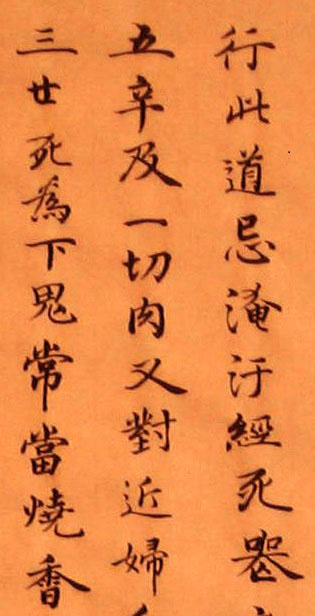 行此道忌淹汙經死喪
五辛及一切肉又對近婦
三世死為下鬼常當燒香